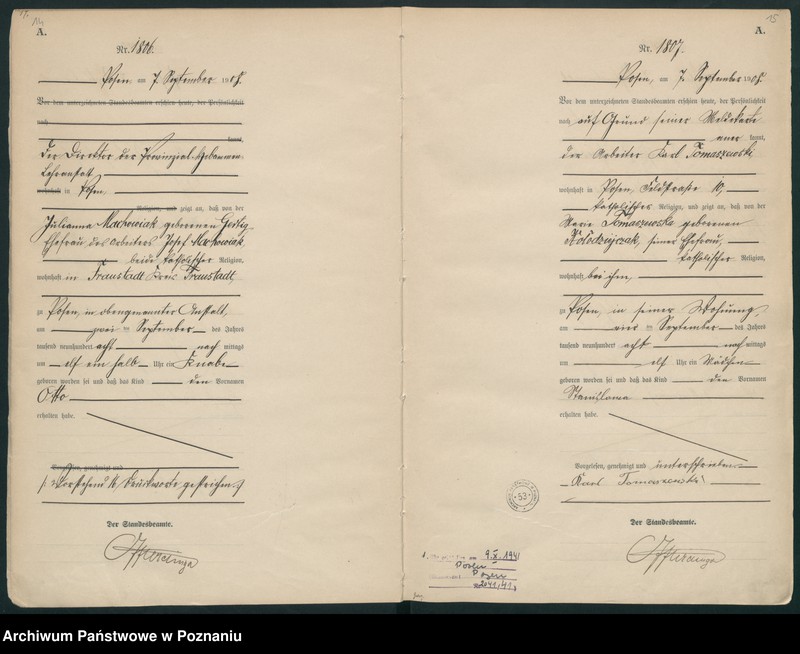 14
A.
Nr. 1806.
Posen, am 7. September 1908.
Vor dem unterzeichneten Standesbeamten erschien heute, der Persönlichkeit
nach
kannt,
Der Direktor der Provinzial-Hebammen
Lehranstalt
wohnhaft in Posen
Religion, und zeigt an, daß von der
Julianna Machowiak geborenen
Ehefrau des Arbeiters Josef Machowiak
beide katholischer Religion,
wohnhaft in Fraustadt Kreis Fraustadt,
zu Posen, in obengenannter Anstalt,
am zwei ten September des Jahres
tausend neunhundert acht nach mittags
um elf ein halb Uhr ein Knabe
geboren worden sei und daß das Kind den Vornamen
Otto
erhalten habe.
Vorgelesen, genehmigt und
Vorstehend 16 Druckworte gestrichen.
Der Standesbeamte.
15
A.
Nr. 1807.
Posen, am 7. September 1908.
Vor dem unterzeichneten Standesbeamten erschien heute, der Persönlichkeit
nach auf Grund seiner Meldekarte
aner kannt,
der Arbeiter Karl Tomaszewski
wohnhaft in Posen, Feldstraße 10,
katholischer Religion, und zeigt an, daß von der
Marie Tomaszewska geborenen
Kolodziejczak, seiner Ehefrau,
katholischer Religion,
wohnhaft bei ihm,
zu Posen, in seiner Wohnung,
am vier ten September des Jahres
tausend neunhundert acht nach mittags
um elf Uhr ein Mädchen
geboren worden sei und daß das Kind den Vornamen
Stanislawa
erhalten habe.
Vorgelesen, genehmigt und unterschrieben
Karl Tomaszewski
Der Standesbeamte.
53
9.X.1941
Posen
Posen
2041/41
Archiwum Państwowe w Poznaniu